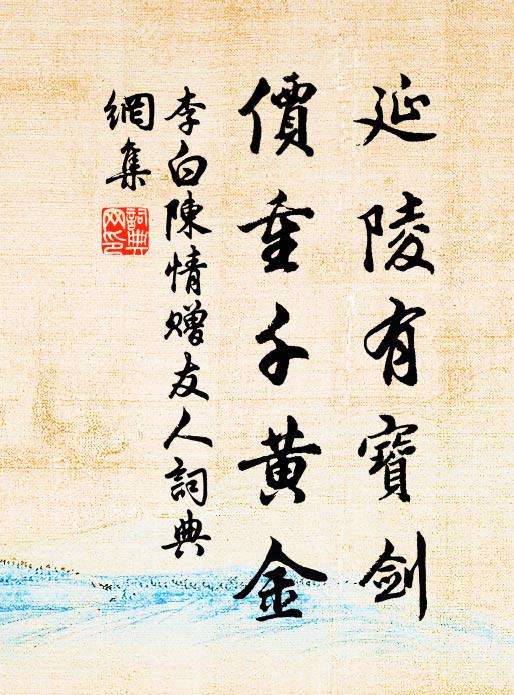 延陵有寶劍
價重千黃金
李白陳情贈友人詞典
網集
詞典網印